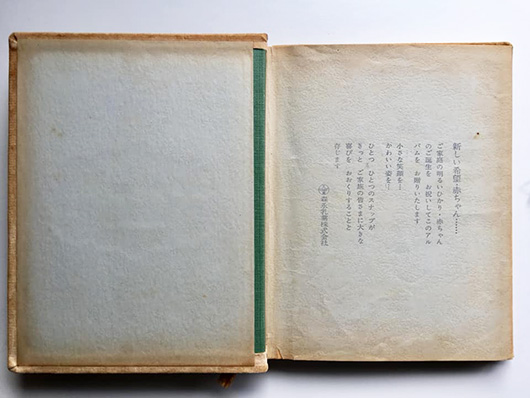 新しい希望・赤ちゃん……
ご家庭の明るいひかり・赤ちゃん
のご誕生を お祝いしてこのアル
バムを お贈りいたします
小さな笑顔を…
かわいい姿を…
ひとつ ひとつのスナップが
きっと ご家族の皆さまに大きな
喜びを おおくりすることと
存じます
森永乳業株式会社